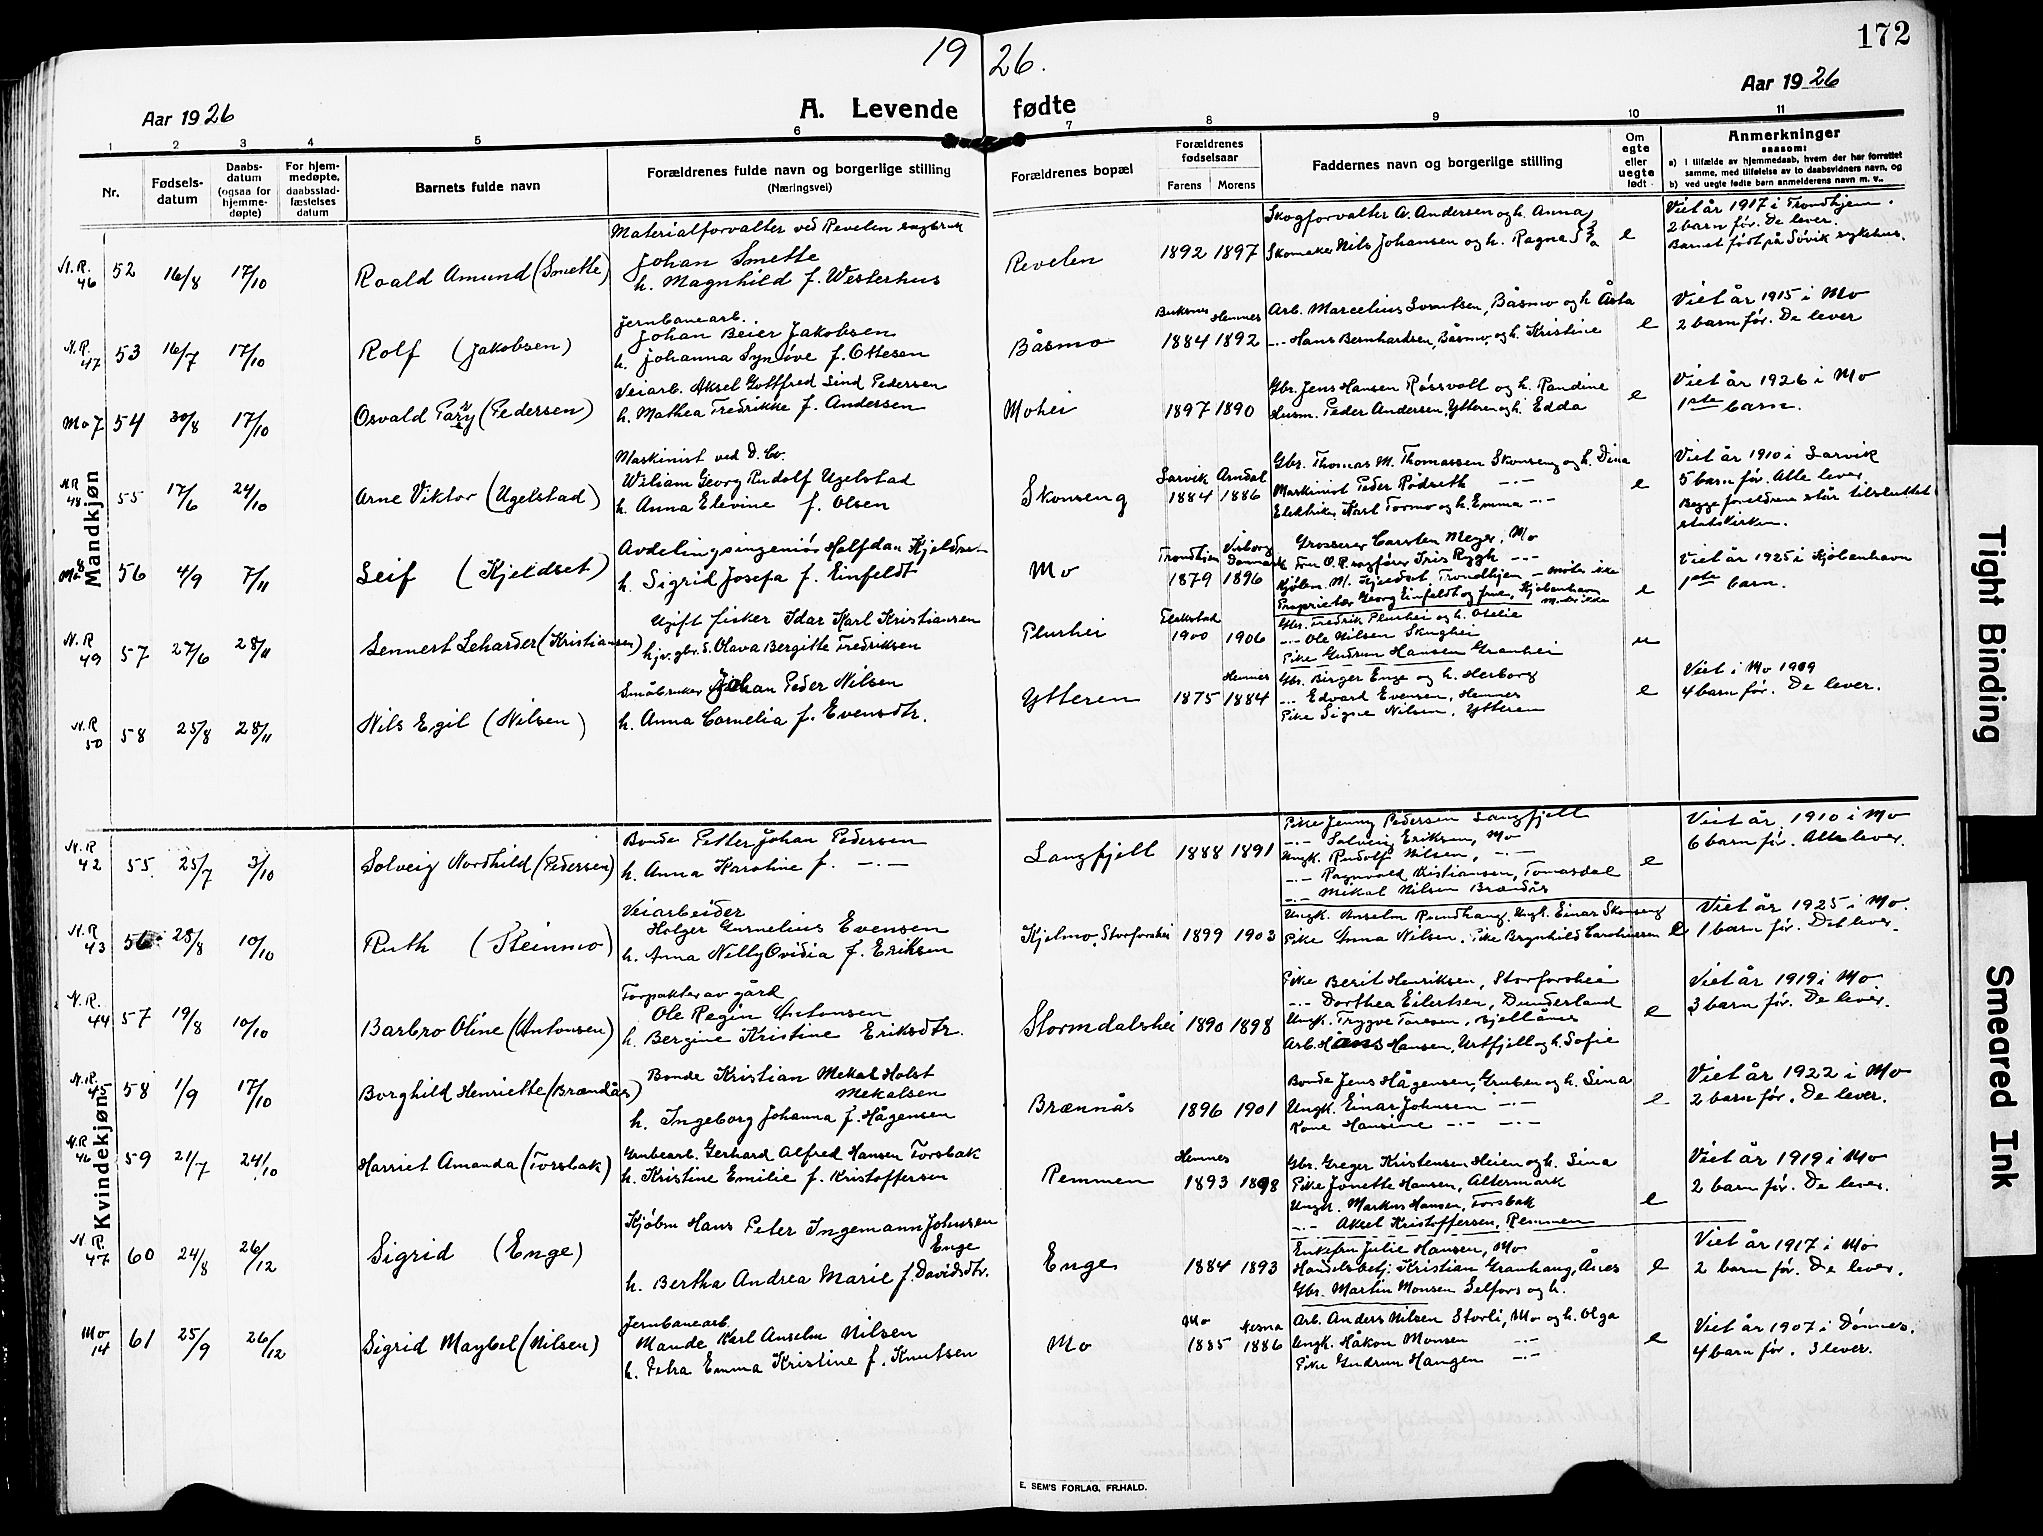 172
19 26.
Aar 1926
A. Levende fødte
Aar 1926
1 2 3 4 5 6 7 8 9 10 11
Nr.
Fødsels-datum
Daabs-datum (ogsaa for hjemme-døpte)
For hjem-medøpte, daabsstad-fæstelses datum
Barnets fulde navn
Forældrenes fulde navn og borgerlige stilling (Næringsvei)
Forældrenes bopæl
Forældrenes fødselsaar
Farens Morens
Faddernes navn og borgerlige stilling
Om egte eller uegte født
Anmerkninger
saasom:
a) i tilfælde av hjemmedaab, hvem der har forrettet samme, med tilføielse av to daabsvidners navn, og
b) ved uegte fødte barn anmelderens navn m. v..
Mandkjøn
N.R. 46 52 16/8 17/10 Roald Amund (Smette)
Materialforvalter ved Revelen sagbruk
Johan Smette
h. Magnhild f. Westerhus
Revelen 1892 1897
Skogforvalter A. Andersen og h. Anna
Skomaker Nils Johansen og h. Ragna
e
Viet år 1917 i Trondhjem.
2 barn før. De lever.
Barnet født på Søvik sykehus.
N.R. 47 53 16/7 17/10 Rolf (Jakobsen)
Jernbanearb.
Johan Beier Jakobsen
h. Johanna Synøve f. Ottesen
Båsmo Buksnes 1884 Hemnes 1892
Arb. Marcelius Svendsen, Båsmo og h. Åsta
-"- Hans Bernhardsen, Båsmo, og h. Kristine
e
Viet år 1915 i Mo
2 barn før. De lever
Mo 7 54 30/8 17/10 Osvald Parry (Pedersen)
Veiarb. Aksel Gottfred Lind Pedersen
h. Mathea Fredrikke f. Andersen
Mohei 1897 1890
Gbr. Jens Hansen Røssvoll og h. Randine
Husm. Peder Andersen, Ytteren og h. Edda
e
Viet år 1926 i Mo
1ste barn.
N.R. 48 55 17/6 24/10 Arne Viktor (Ugelstad)
Maskinist ved D. Co.
Wiliam Georg Rudolf Ugelstad
h. Anna Elevine f. Olsen
Skonseng Larvik 1884 Arndal 1886
Gbr. Thomas M. Thomassen Skonseng og h. Dina
Maskinist Peder Rødseth -"-
Elektriker Karl Tormo og h. Emma -"-
e
Viet år 1910 i Larvik
5 barn før. Alle lever
Begge foreldrene står tilsluttet
statskirken.
Mo 8 56 4/9 7/11 Leif (Kjeldset)
Avdelingsingeniør Halfdan Kjeldset
h. Sigrid Josefa f. Einfeldt
Mo Trondhjem 1879 Viborg Danmark 1896
Grosserer Carsten Meyer, Mo
Fru O.R.sagfører Iris Rygh -"-
Kjøbm. M. Kjeldset, Trondhjem - møter ikke
Proprietær Georg Einfeldt og frue, Kjøbenhavn
e
Viet år 1925 i Kjøbenhavn
1ste barn.
N.R 49 57 27/6 28/11 Lennert Leharder (Kristiansen)
Ugift fisker Idar Karl Kristiansen
hjv. gbr. d. Olava Bergitte Fredriksen
Plurhei 1900 1906
Gbr. Fredrik Plurhei og h. Otelie
-"- Ole Nilsen Skughei
Pike Gudrun Hansen Granhei
u
N.R 50 58 25/8 28/11 Nils Egil (Nilsen)
Småbruker Johan Peder Nilsen
h. Anna Cornelia f. Evensdtr.
Ytteren 1875 Hemnes 1884
Gbr. Birger Enge og h. Herborg
-"- Edvard Evensen, Hemnes
Pike Signe Nilsen, Ytteren
e
Viet i Mo 1909
4 barn før. De lever.
Kvindekjøn
N.R 42 55. 25/7 3/10 Solveig Nordhild (Pedersen)
Bonde Petter Johan Pedersen
h. Anna Karoline f. -"-
Langfjell 1888 1891
Pike Jenny Pedersen Langfjell
-"- Solveig Eriksen, Mo
Ungk. Rudolf Nilsen, -"-
-"- Ragnvald Kristiansen, Tomasdal
-"- Mikal Nilsen Brændås
e
Viet år 1910 i Mo
6 barn før. Alle lever.
N.R 43 56 28/8 10/10 Ruth (Steinmo)
Veiarbeider
Holger Kornelius Evensen
h. Anna Nelly Ovidia f. Eriksen
Kjelmo, Storforshei 1899 1903
Ungk. Anselm Rundhaug, Ungk. Einar Skonseng
Pike Anna Nilsen, Pike Brynhild Caroliussen
e
Viet år 1925 i Mo.
1 barn før. Det lever.
N.R. 44 57 19/8 10/10 Barbro Oline (Antonsen)
Forpakter av gård
Ole Regin Antonsen
h. Bergine Kristine Eriksdtr.
Stormdalshei 1890 1898
Pike Berit Henriksen, Storforshei
-"- Dorthea Eilertsen, Dunderland
Ungk. Trygve Toresen, Bjellånes
Arb. Hans Hansen, Urtfjell og h. Sofie
e
Viet år 1919 i Mo
3 barn før. De lever.
N.R. 45 58 1/9 17/10 Borghild Henriette (Brændås)
Bonde Kristian Mekal Holst
Mekalsen
h. Ingeborg Johanna f. Hågensen
Brænnås 1896 1901
Bonde Jens Hågensen, Gruben og h. Lina
Ungk. Einar Johnsen -"-
Kone Hansine -"- -"-
e
Viet år 1922 i Mo
2 barn før. De lever.
N.R 46 59 21/7 24/10 Harriet Amanda (Forsbak)
Grubearb. Gerhard Alfred Hansen Forsbak
h. Kristine Emilie f. Kristoffersen
Remmen Hemnes 1893 1898
Gbr. Greger Kristensen Heien og h. Lina
Pike Jonette Hansen, Altermark
Ungk. Markus Hansen, Forsbak
-"- Aksel Kristoffersen, Remmen
e
Viet år 1919 i Mo
2 barn før. De lever.
N.R 47 60 24/8 26/12 Sigrid (Enge)
Kjøbm Hans Peter Ingemann Johnsen
Enge
h. Bertha Andrea Marie f. Davidsdtr.
Enge 1884 1893
Enkefru Julie Hansen, Mo
Handelsbetj. Kristian Granhaug, Ånes
Gbr. Martin Monsen Selfors og h.
e
Viet år 1917 i Mo
2 barn før. De lever.
Mo 14 61 25/9 26/12 Sigrid Maybel (Nilsen)
Jernbanearb.
Mande Karl Anselm Nilsen
h. Petra Emma Kristine f. Knutsen
Mo Mo 1885 Nesna 1886
Arb. Anders Nilsen Storli, Mo og h. Olga
Ungk. Håkon Monsen -"-
Pike Gudrun Haugen -"-
e
Viet år 1907 i Dønnes.
4 barn før. 3 lever.
E. SEM'S FORLAG, FR.HALD.
Tight Binding
Smeared Ink